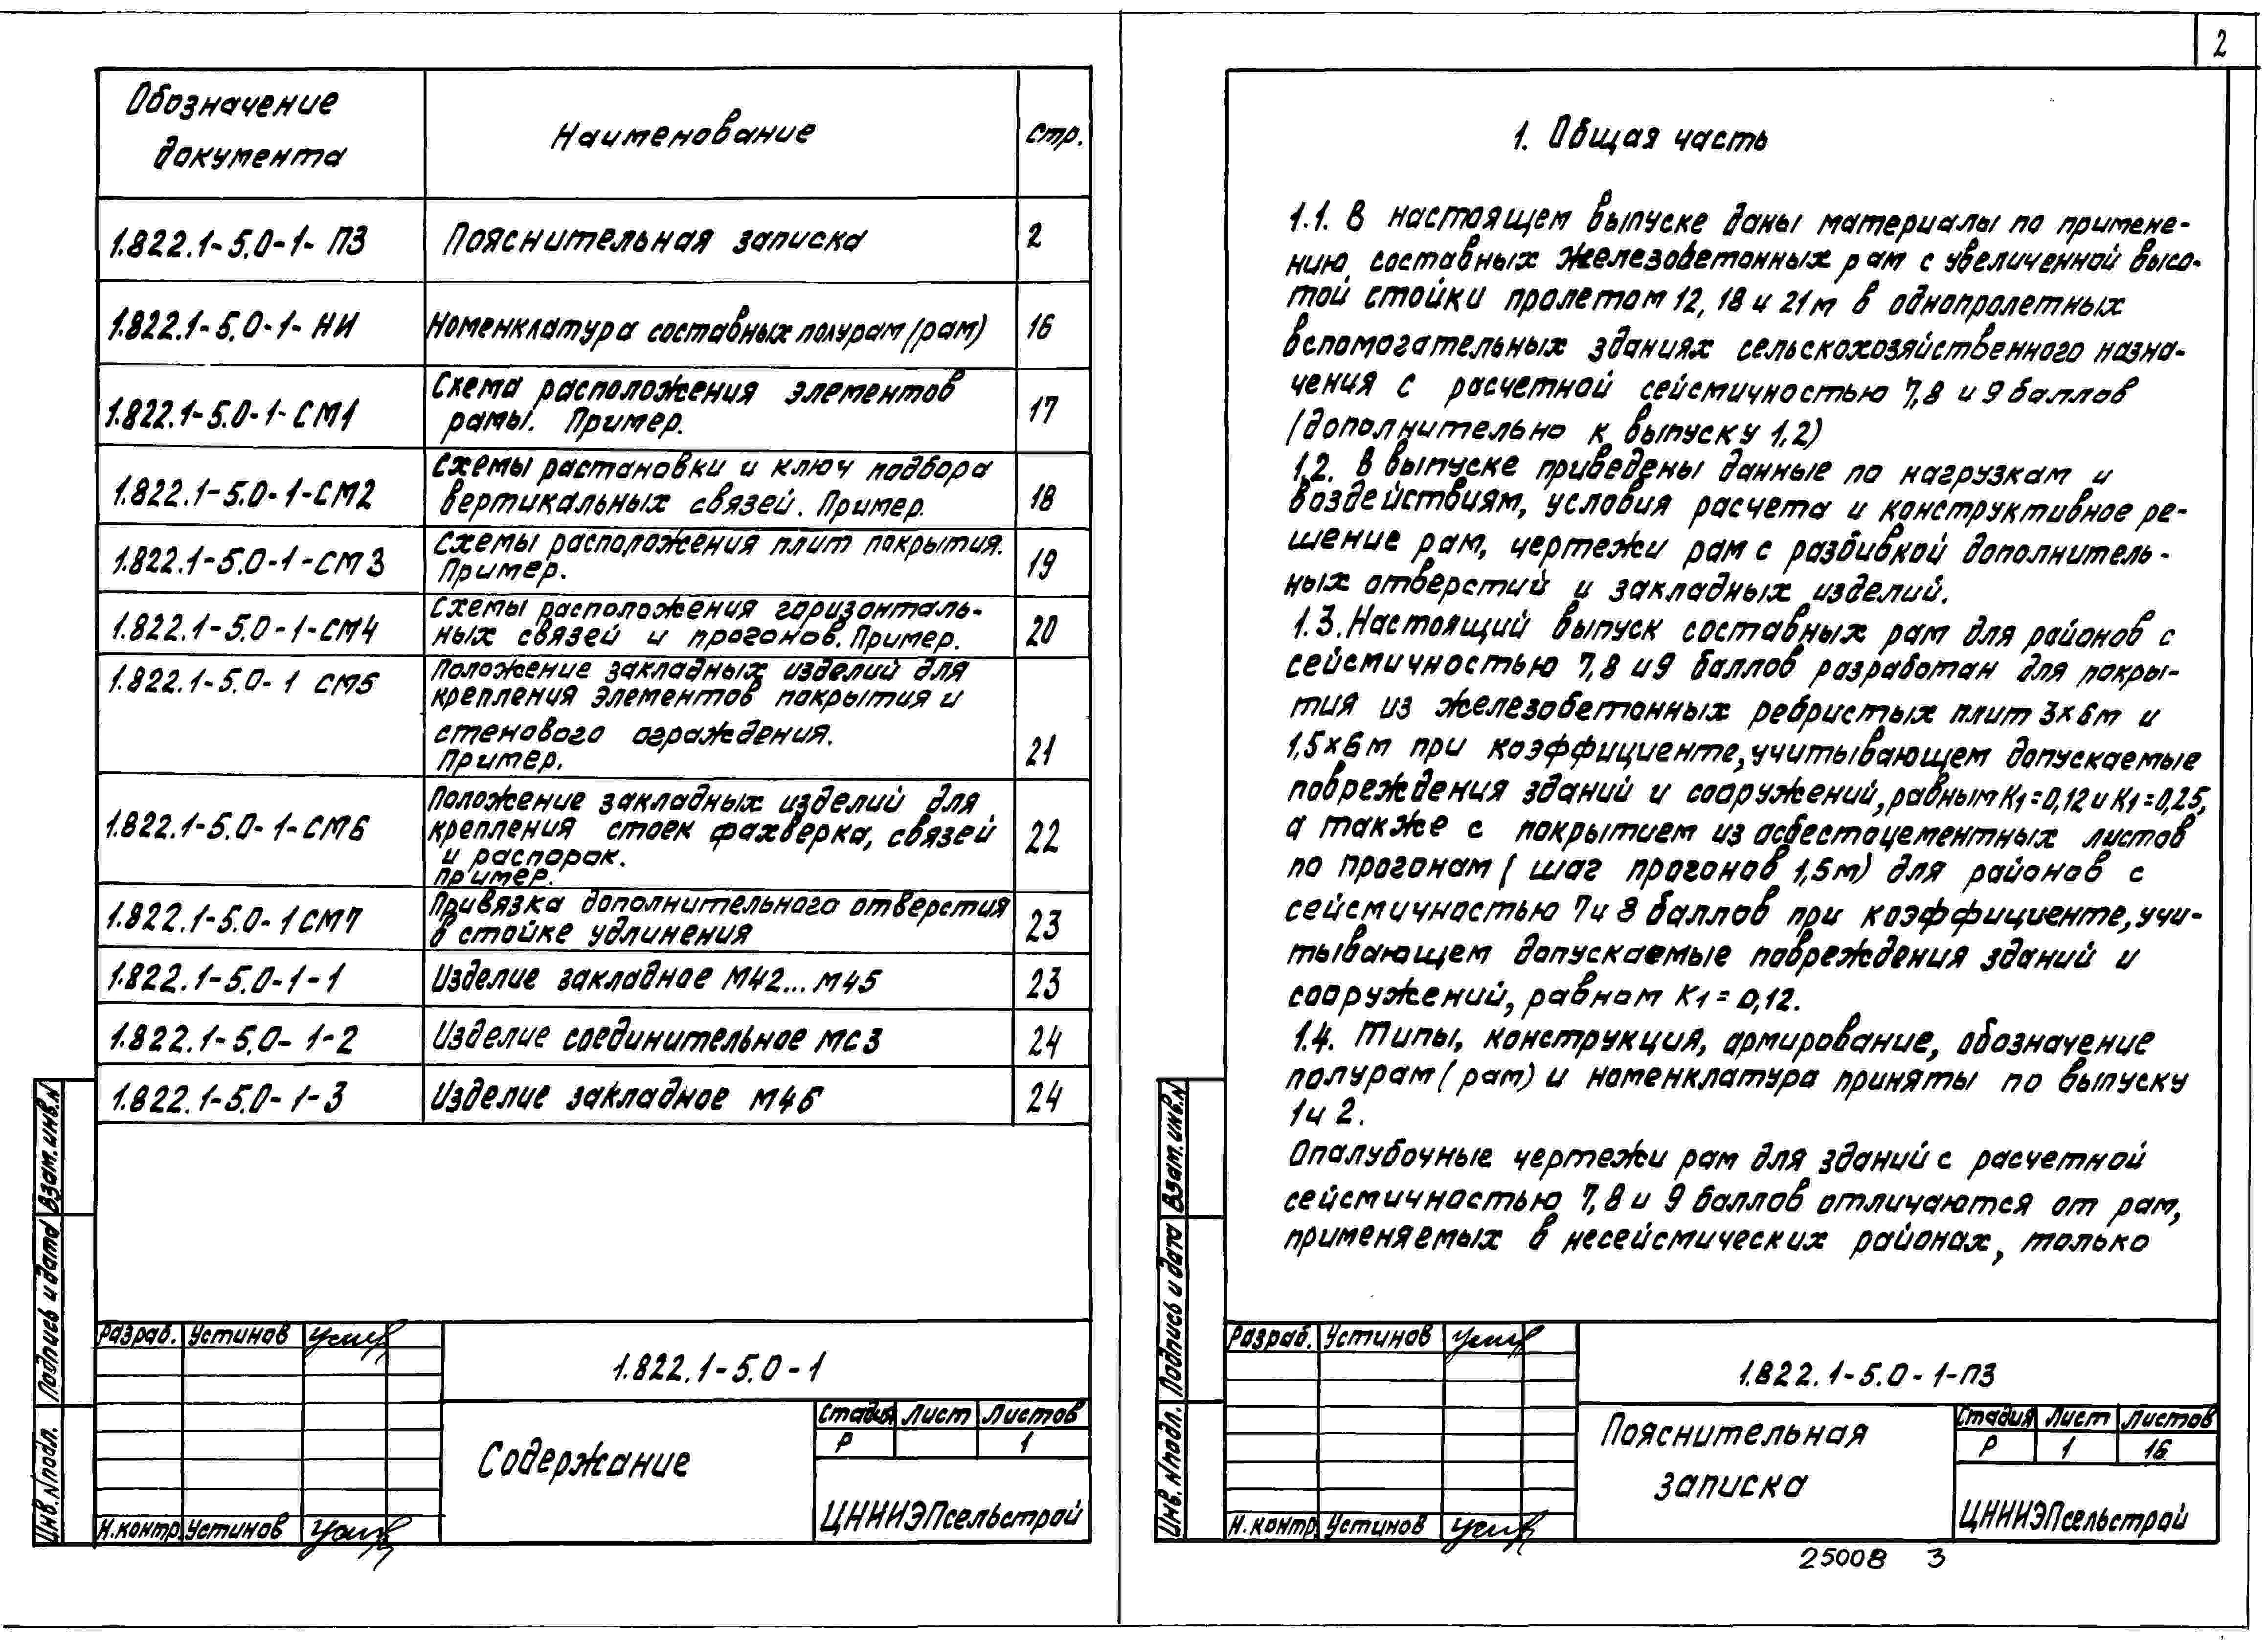 2
Обозначение документа
Наименование
стр.
1.822.1-5.0-1-ПЗ
Пояснительная записка
2
1.822.1-5.0-1-НИ
Номенклатура составных полурам (рам)
16
1.822.1-5.0-1-СМ1
Схема расположения элементов
рамы. Пример.
17
1.822.1-5.0-1-СМ2
Схемы растановки и ключ подбора
вертикальных связей. Пример.
18
1.822.1-5.0-1-СМ3
Схемы расположения плит покрытия.
Пример.
19
1.822.1-5.0-1-СМ4
Схемы расположения горизонталь-
ных связей и прогонов. Пример.
20
1.822.1-5.0-1 СМ5
Положение закладных изделий для
крепления элементов покрытия и
стенового ограждения.
Пример.
21
1.822.1-5.0-1-СМ6
Положение закладных изделий для
крепления стоек фахверка, связей
и распорок.
Пример.
22
1.822.1-5.0-1 СМ7
Привязка дополнительного отверстия
в стойке удлинения
23
1.822.1-5.0-1-1
Изделие закладное М42...М45
23
1.822.1-5.0-1-2
Изделие соединительное МС3
24
1.822.1-5.0-1-3
Изделие закладное М46
24
Взам.инв.N
Подпись и дата
Инв.Nподл.
Разраб. Устинов
Н.контр. Устинов
1.822.1-5.0-1
Содержание
Стадия Лист Листов
Р 1
ЦНИИЭПсельстрой
1. Общая часть
1.1. В настоящем выпуске даны материалы по примене-
нию составных железобетонных рам с увеличенной высо-
той стойки пролетом 12, 18 и 21м в однопролетных
вспомогательных зданиях сельскохозяйственного назна-
чения с расчетной сейсмичностью 7,8 и 9 баллов
(дополнительно к выпуску 1,2)
1.2. В выпуске приведены данные по нагрузкам и
воздействиям, условия расчета и конструктивное ре-
шение рам, чертежи рам с разбивкой дополнитель-
ных отверстий и закладных изделий.
1.3. Настоящий выпуск составных рам для районов с
сейсмичностью 7,8 и 9 баллов разработан для покры-
тия из железобетонных ребристых плит 3×6м и
1,5×6м при коэффициенте, учитывающем допускаемые
повреждения зданий и сооружений, равным К1=0,12 и К1=0,25,
а также с покрытием из асбестоцементных листов
по прогонам (шаг прогонов 1,5м) для районов с
сейсмичностью 7 и 8 баллов при коэффициенте, учи-
тывающем допускаемые повреждения зданий и
сооружений, равном К1=0,12.
1.4. Типы, конструкция, армирование, обозначение
полурам (рам) и номенклатура приняты по выпуску
1 и 2.
Опалубочные чертежи рам для зданий с расчетной
сейсмичностью 7,8 и 9 баллов отличаются от рам,
применяемых в несейсмических районах, только
Взам.инв.N
Подпись и дата
Инв.Nподл.
Разраб. Устинов
Н.контр. Устинов
1.822.1-5.0-1-ПЗ
Пояснительная
записка
Стадия Лист Листов
Р 1 16
ЦНИИЭПсельстрой
25008 3